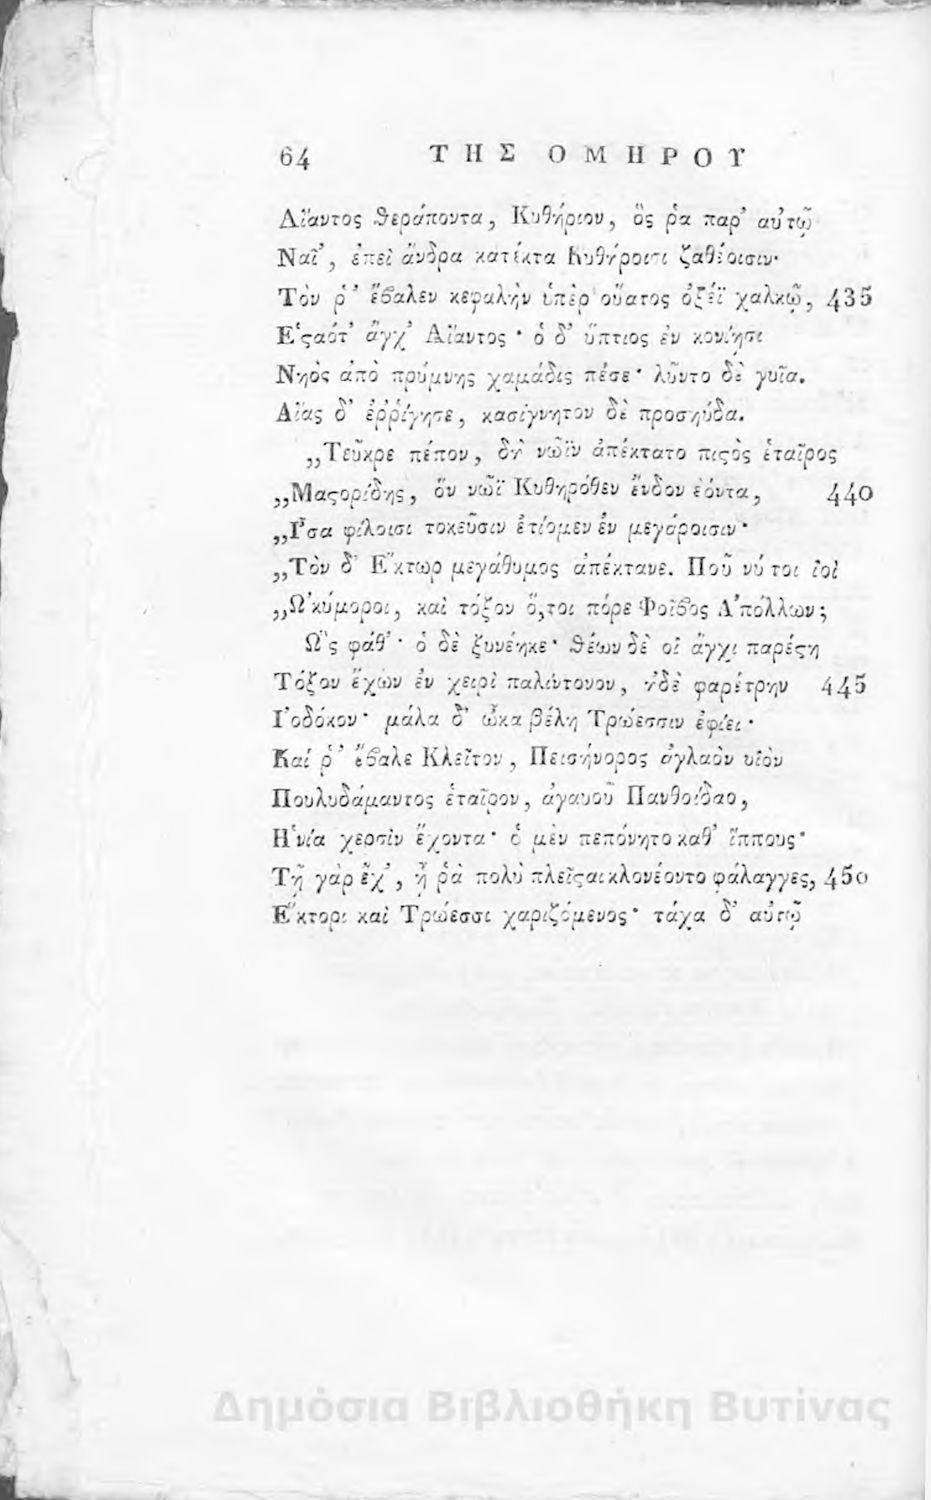 64 ΤΗΣ ΟΜΗΡΟΥ
Αἴαντος ϑεράποντα, Κυθήριον, ὅς ῥα παρ' αὐτῷ
Ναῖ', ἐπεὶ ἄνδρα κατέκτα Κυθήροισι ζαθέοισιν·
Τόν ῥ' ἔϐαλεν κεφαλὴν ὑπὲρ οὔατος ὀξέϊ χαλκῷ, 435
Ε῾ϛαότ' ἄγχ' Αἴαντος · ὁ δ' ὕπτιος ἐν κονίῃσι
Νηὸς ἀπὸ πρύμνης χαμάδις πέσε· λῦντο δὲ γυῖα.
Αἴας δ' ἐῤῥίγησε, κασίγνητον δὲ προσηύδα.
„Τεῦκρε πέπον, δὴ νῶϊν ἀπέκτατο πιϛὸς ἑταῖρος
„Μαϛορίδης, ὃν νῶϊ Κυθηρόθεν ἔνδον ἐόντα, 440
„Ι῏σα φίλοισι τοκεῦσιν ἐτίομεν ἐν μεγάροισιν·
„Τὸν δ' Ε῞κτωρ μεγάθυμος ἀπέκτανε. Ποῦ νύ τοι ἰοὶ
„Ω᾿κύμοροι, καὶ τόξον ὅ,τοι πόρε Φοῖϐος Α᾿πόλλων;
Ω῝ς φάθ'· ὁ δὲ ξυνέηκε· ϑέων δὲ οἱ ἄγχι παρέϛη
Τόξον ἔχων ἐν χειρὶ παλίντονον, ἠδὲ φαρέτρην 445
Ι᾿οδόκον· μάλα δ' ὦκα βέλη Τρώεσσιν ἐφίει·
Καί ῥ' ἔϐαλε Κλεῖτον, Πεισήνορος ἀγλαὸν υἱὸν
Πουλυδάμαντος ἑταῖρον, ἀγαυοῦ Πανθοίδαο,
Η῾νία χερσὶν ἔχοντα· ὁ μὲν πεπόνητο καθ' ἵππους·
Τῇ γὰρ ἔχ', ᾗ ῥὰ πολὺ πλεῖϛαι κλονέοντο φάλαγγες, 450
Ε῞κτορι καὶ Τρώεσσι χαριζόμενος· τάχα δ' αὐτῷ
Δημόσια Βιβλιοθήκη Βυτίνας